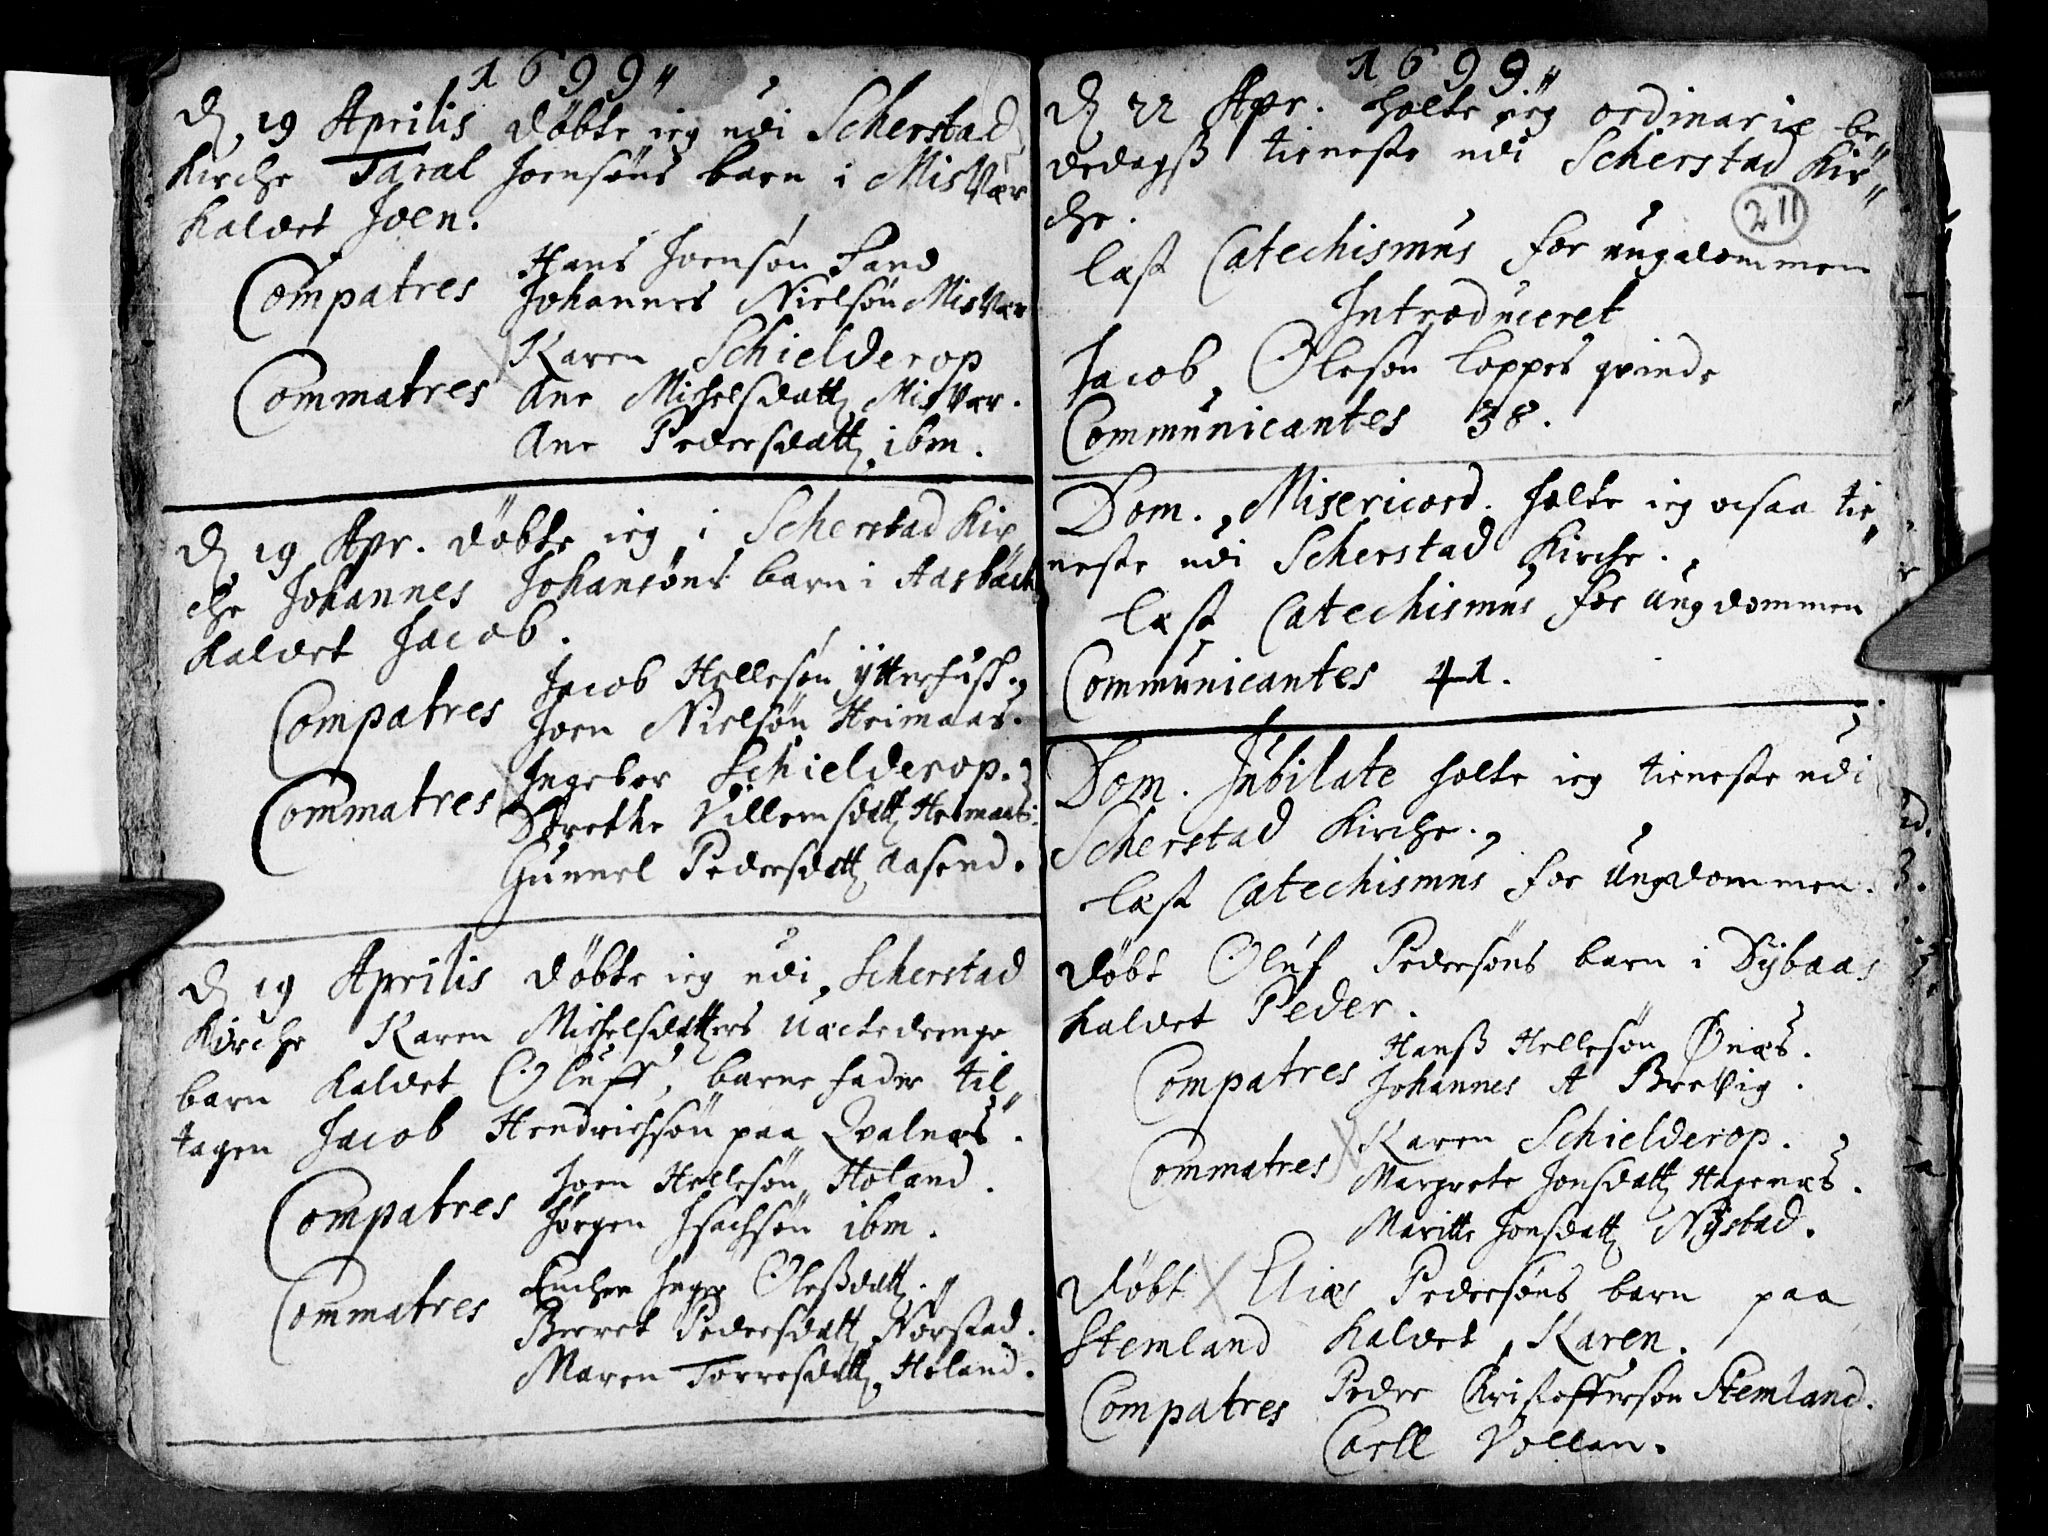 1699"
D. 19 Aprilis döbte ieg udi Scherstad
Kirche Taral Joensøns barn i Misvær
kaldet Joen.
Compatres Hans Joensøn Sand
Johannes Nielsøn Misvær
Commatres Karen Schielderop
Ane Michelsdatt Misvær.
Ane Pedersdatt, ibm.
D. 19 Apr. döbte ieg i Scherstad Kir
che Johannes Johansøns barn i Aasbach
kaldet Jacob.
Compatres Jacob Hellesøn ÿtterhus
Joen Nielsøn Heimaas.
Commatres Ingebor Schielderop.
Grethe Villemsdatt Heimaas:
Gunnel Pedersdatt Aasend.
D. 19 Aprilis döbte ieg udi Scherstad
Kirche Karen Michelsdatters uæctedrenge
barn kaldet Oluff, barne fader til"
tagen Jacob Hendrichsøn paa Qvalnæs.
Compatres Joen Hellesøn Höland.
Jörgen Isachsøn ibm.
Commatres Inger Olesdatt.
Berret Pedersdatt Norstad.
Maren Torresdatt, Höland.
1699"
D. 22 Apr. holte ieg ordinarie be"
dedagß tieneste udi Scherstad Kir"
che.
211
læst Catechismus for ungdommen
Introduceret
Jacob Olesøn Loppes qvinde
Communicantes 38.
Dom. Misericord. holte ieg ocsaa tie"
neste udi Scherstad Kirche.
læst Catechismus for Ungdommen
Communicantes 41.
Dom. Jubilate holte ieg tieneste udi
Scherstad Kirche.
læst Catechismus for Ungdommen.
döbt Oluf Pedersøns barn i Dÿbaas
kaldet Peder.
Compatres Hanß Hellesøn Ønæs.
Johannes A Brevig.
Commatres Karen Schielderop.
Margrete Jonsdatt Hagenæs.
Maritte Jonsdatt Nÿstad.
Döbt Elias Pedersøns barn paa
Stemland kaldet Karen.
Compatres Peder Christoffersøn Stemland.
Carll Vollan.